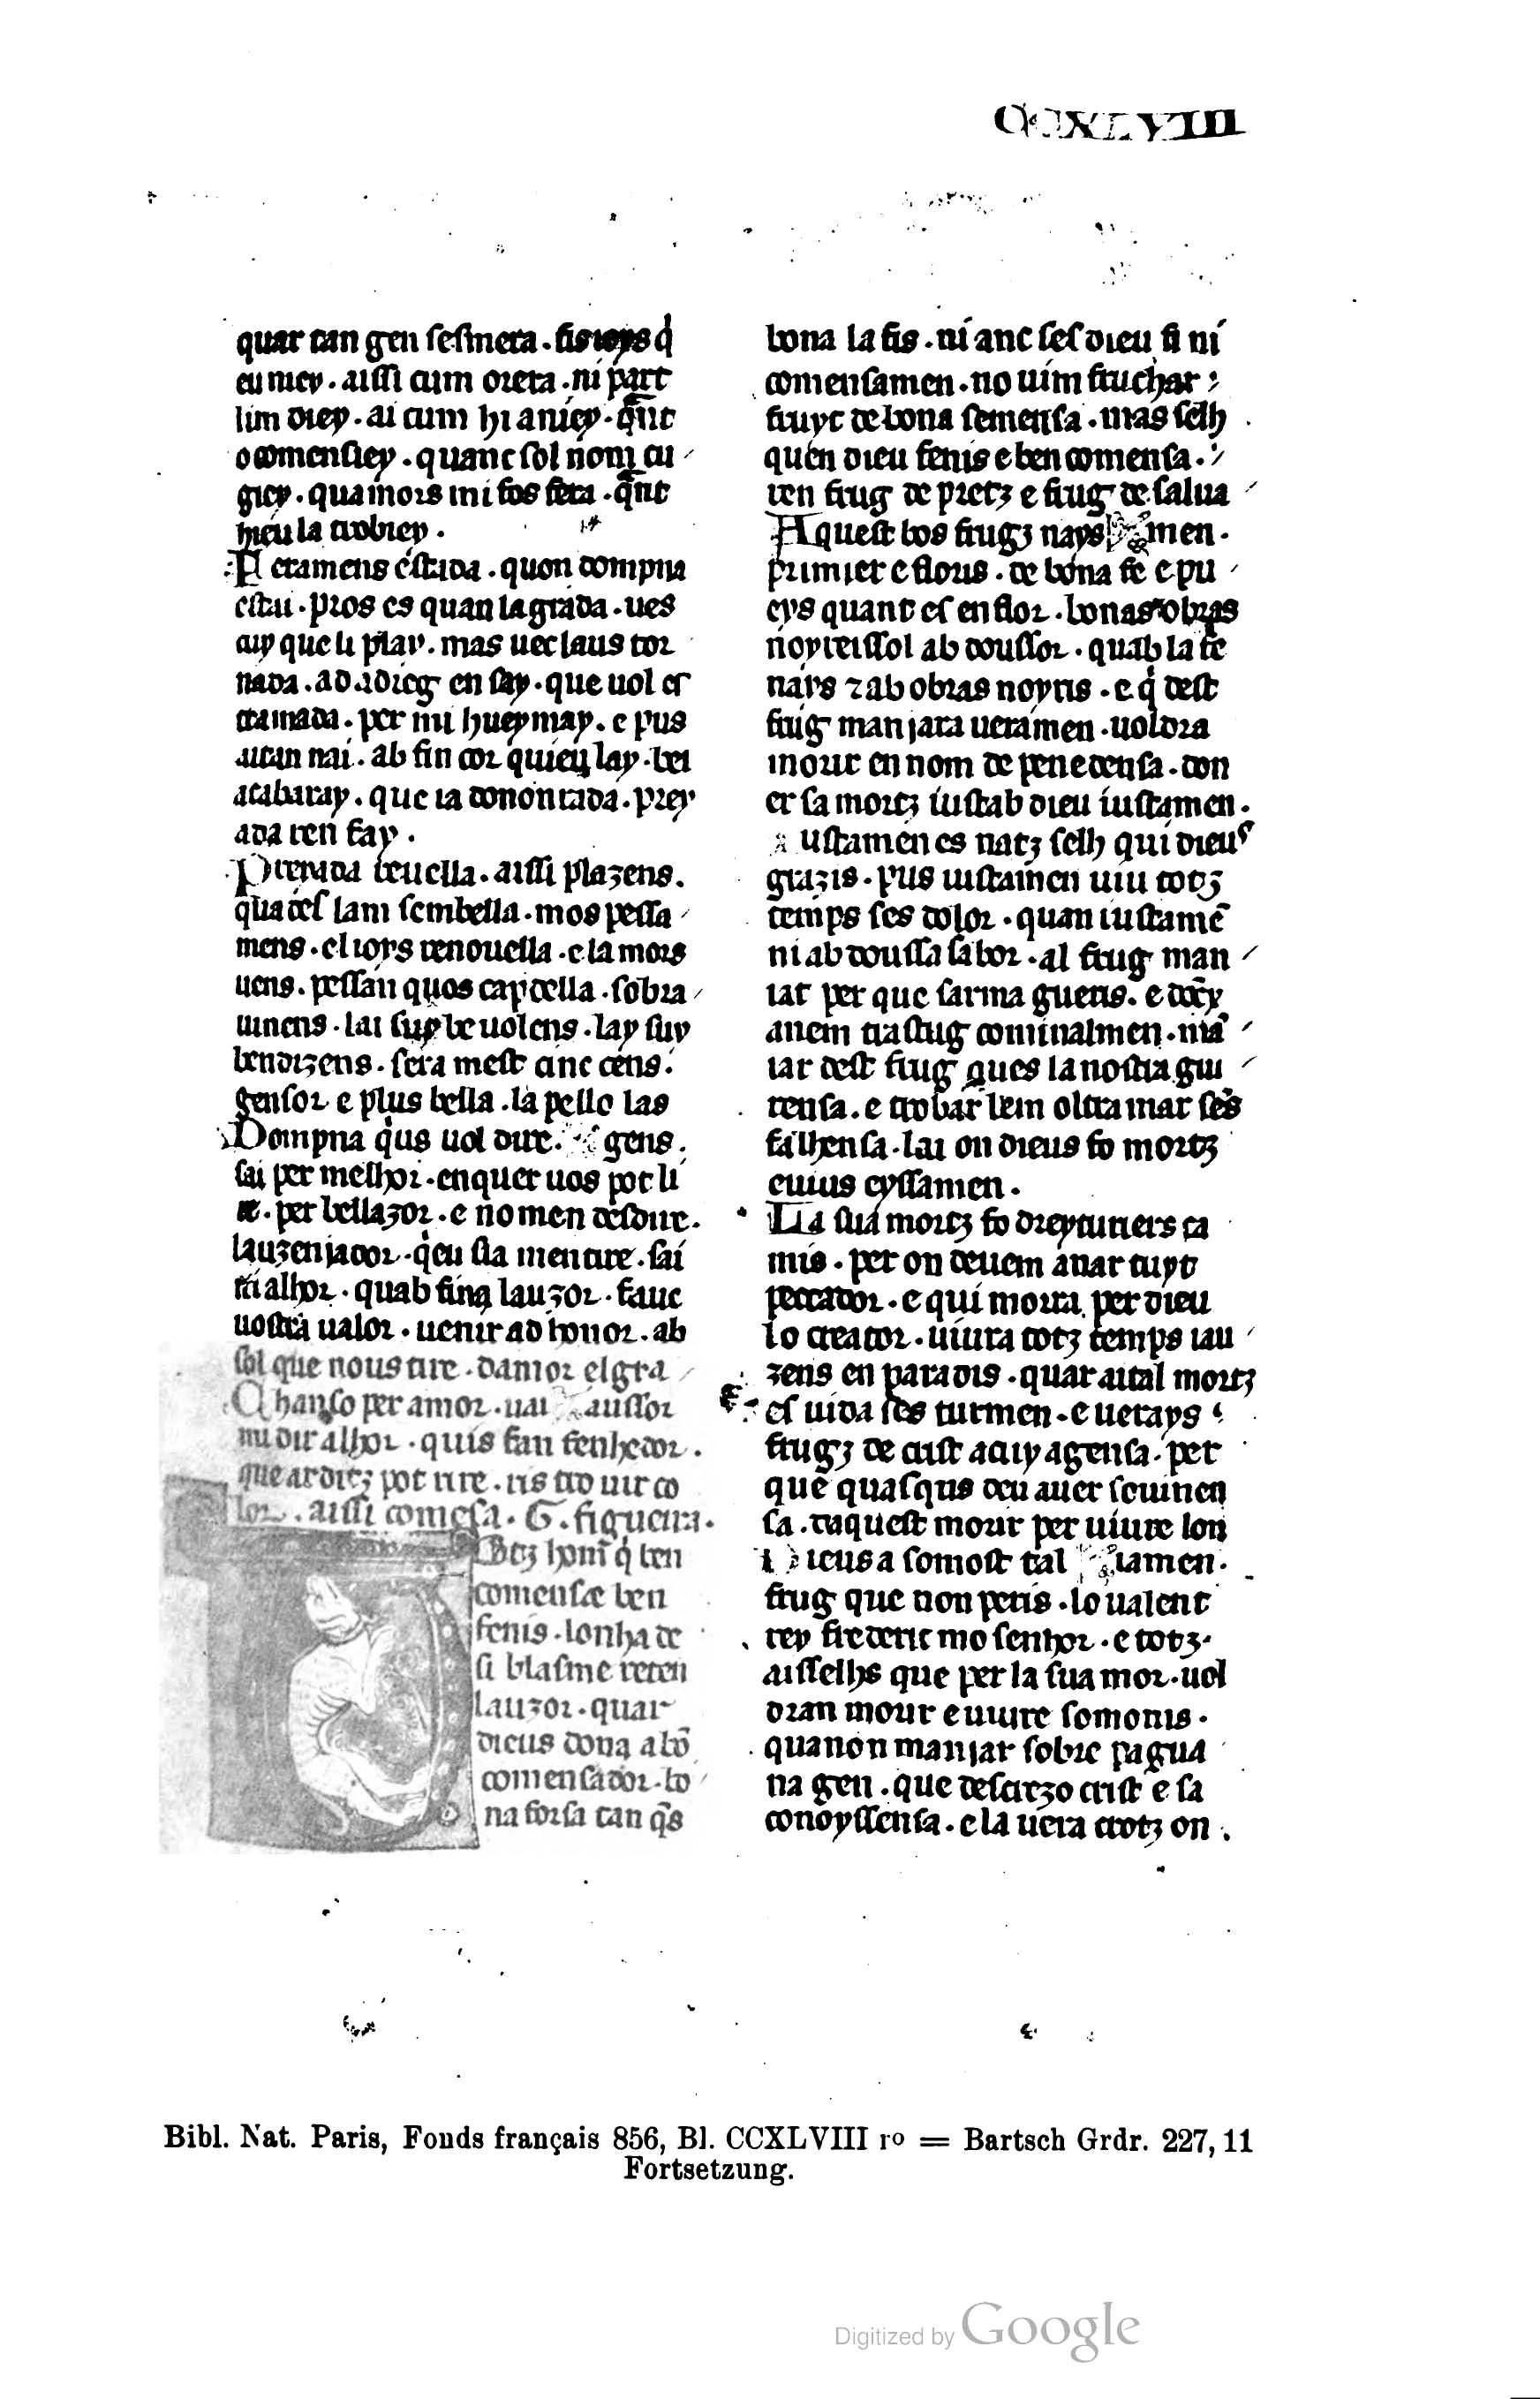 CCXLVIII
quar tan gen sesmera. fis ioys q̇
eu mey. aissi cum oiera. ni part
lim diey. ai cum hi aniey. q̄nt
o comensiey. quanc sol nom cu
giey. qua mors mi fos fera. q̄nt
hieu la trobiey.
Petramens estada. quon dompna
estai. pros es quan lagrada. ues
cuy que li play. mas uec laus tor
nada. ad adieg en say. que uol er
tramada. per mi huey may. e pus
aitan nai. ab fin cor quieu lay. bei
acabaray. que ia dononrada. prey
ada ren fay.
Preyada beuella. aissi plazens.
qua des lam sembella. mos pessa
mens. el ioys renouella. e la mors
uens. pessan quos capdella. sobra
iunens. lai suy be uolens. lay suy
bendizens. sera mest cinc cens.
gensor e plus bella. la pello las
Dompna q̇us uol dire. gens.
sai per melhor. enquer uos pot li
re. per bellazor. e no men desdire.
lauzeniador. q̇eu sia mentire. sai
ni alhor. quab fina lauzor. fauc
uostra ualor. uenir ad honor. ab
sol que nous tire. damor el gra
Chanso per amor. uai aussor
mi dir alhor. quis fan fenhedor.
que arditz pot rire. ris tro uir co
lor. aissi comesa. G. figueira.
Totz hom̄ q̇ ben
comensa e ben
fenis. lonha de
si blasme reten
lauzor. quar
dieus dona a bō
comensador. bo
na forsa tan q̄s
bona la fis. ni anc ses dieu fi ni
comensamen. no uim fruchar
fruyt de bona semensa. mas selh
quen dieu fenis e ben comensa.
ren frug de pretz e frug de salua
Aquest bos frugz nays men.
primier e floris. de bona fe e pu
eys quant es en flor. bonas obras
noyreissol ab doussor. quab la fe
nays ⁊ ab obras noyris. e q̇ dest
frug maniara ueramen. uoldra
morir en nom de penedensa. don
er sa mortz iust ab dieu iustamen.
Iustamen es natz selh qui dieus
grazis. pus iustamen uiu totz
temps ses dolor. quan iustamē
ni ab doussa sabor. al frug man
iar per que sarma gueris. e doc̄x
anem trastug cominalmen. mā
iar dest frug ques la nostra gui
rensa. e trobar lem oltra mar ses
falhensa. lai on dieus fo mortz
e uius eyssamen.
La sua mortz fo dreyturiers ca
mis. per on deuem anar tuyt
peccador. e qui morra per dieu
lo creator. uiura totz temps iau
zens en paradis. quar aital mortz
es uida ses turmen. e uerays
frugz de crist a cuy agensa. per
que quasqus deu auer souinen
sa. daquest morir per uiure lon
Dieus a somost tal iamen.
frug que non peris. lo ualent
rey frederic mo senhor. e totz
aisselhs que per la sua mor. uol
dran morir e uiure somonis.
quanon maniar sobre pagua
na gen. que descrezo crist e sa
conoyssensa. e la uera crotz on.
Bibl. Nat. Paris, Fonds français 856, Bl. CCXLVIII ro = Bartsch Grdr. 227, 11
Fortsetzung.
Digitized by Google